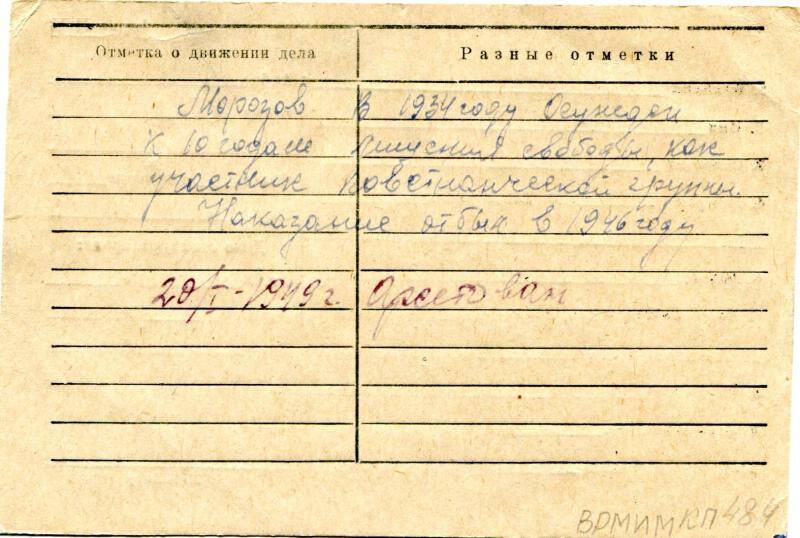 Отметка о движении дела
Разные отметки
Морозов в 1934 году Осужден
к 10 годам лишения свободы, как
участник повстанческой группы.
Наказание отбыл в 1946 году
20/I-1949 г. Арестован
ВРМИМКП 484